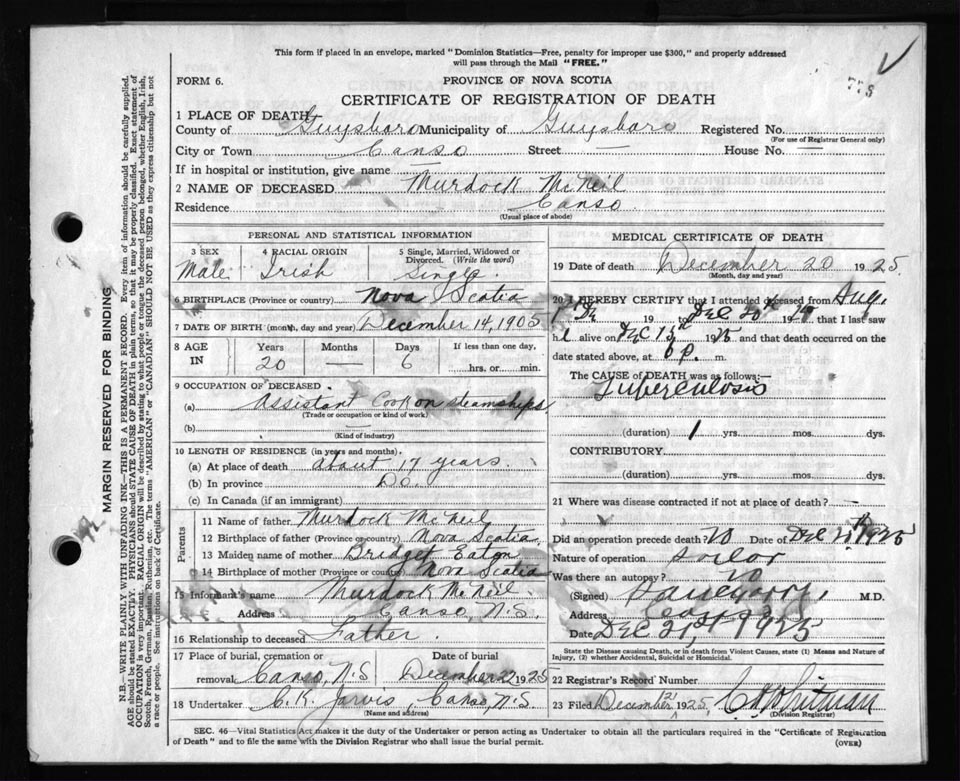 This form if placed in an envelope, marked "Dominion Statistics—Free, penalty for improper use $300," and properly addressed
will pass through the Mail "FREE."
FORM 6.
PROVINCE OF NOVA SCOTIA
778
CERTIFICATE OF REGISTRATION OF DEATH
1 PLACE OF DEATH
County of Guysboro Municipality of Guysboro Registered No.
(For use of Registrar General only)
City or Town Canso Street — House No. —
If in hospital or institution, give name —
2 NAME OF DECEASED Murdock McNeil
Residence Canso
(Usual place of abode)
PERSONAL AND STATISTICAL INFORMATION
3 SEX 4 RACIAL ORIGIN 5 Single, Married, Widowed or
Divorced. (Write the word)
Male Irish Single
6 BIRTHPLACE (Province or country) Nova Scotia
7 DATE OF BIRTH (month, day and year) December 14, 1905
8 AGE IN Years Months Days If less than one day,
20 — 6 hrs. or min.
9 OCCUPATION OF DECEASED
(a) Assistant Cook on steamships
(Trade or occupation or kind of work)
(b) —
(Kind of industry)
10 LENGTH OF RESIDENCE (in years and months).
(a) At place of death about 17 years.
(b) In province Do.
(c) In Canada (if an immigrant)
Parents
11 Name of father Murdock McNeil
12 Birthplace of father (Province or country) Nova Scotia
13 Maiden name of mother Bridget Eaton
14 Birthplace of mother (Province or country) Nova Scotia
15 Informant's name Murdock McNeil
Address Canso, N.S.
16 Relationship to deceased Father.
17 Place of burial, cremation or Date of burial
removal Canso, N.S December 22 1925
18 Undertaker C.K. Jarvis, Canso, N.S.
(Name and address)
MEDICAL CERTIFICATE OF DEATH
19 Date of death December 20 1925.
(Month, day and year)
20 I HEREBY CERTIFY that I attended deceased from Aug.
19 to Dec 20th 19 that I last saw
h alive on Dec 19 and that death occurred on
date stated above, at 6 p. m.
The CAUSE of DEATH was as follows:—
Tuberculosis
(duration) 1 yrs. mos. dys.
CONTRIBUTORY.
(duration) yrs. mos. dys.
21 Where was disease contracted if not at place of death?
Did an operation precede death? No Date of Dec 1925
Nature of operation
Was there an autopsy? No
(Signed) M.D.
Address Canso
Date Dec 21st 1925
State the Disease causing Death, or in death from Violent Causes, state (1) Means and Nature of
Injury, (2) whether Accidental, Suicidal or Homicidal.
22 Registrar's Record Number
23 Filed December 21 1925, Whitman
(Division Registrar)
SEC. 46—Vital Statistics Act makes it the duty of the Undertaker or person acting as Undertaker to obtain all the particulars required in the "Certificate of Registration
of Death" and to file the same with the Division Registrar who shall issue the burial permit.
(OVER)
MARGIN RESERVED FOR BINDING
N.B.—WRITE PLAINLY WITH UNFADING INK—THIS IS A PERMANENT RECORD. Every item of information should be carefully supplied.
AGE should be stated EXACTLY. PHYSICIANS should state CAUSE OF DEATH in plain terms, so that it may be properly classified. Exact statement of
OCCUPATION is very important. RACIAL ORIGIN will be described by stating to what people or race the deceased person belonged, whether English, Irish,
Scotch, French, German, Russian, Ruthenian, etc. The terms "AMERICAN" or "CANADIAN" SHOULD NOT BE USED as they express citizenship but not
a race or people. See instructions on back of Certificate.